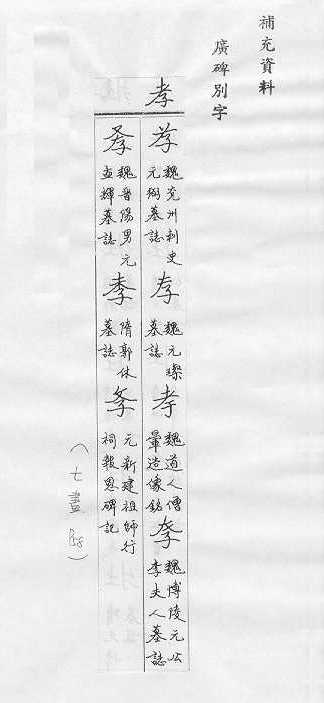 補充資料
廣碑別字
孝
魏兗州刺史
元弼墓誌
魏元璨
墓誌
孝
魏道人僧
暈造像銘
魏博陵元公
李夫人墓誌
魏晉陽男元
孟輝墓誌
隋郭休
墓誌
元新建祖師行
祠報恩碑記
(七畫 P58)